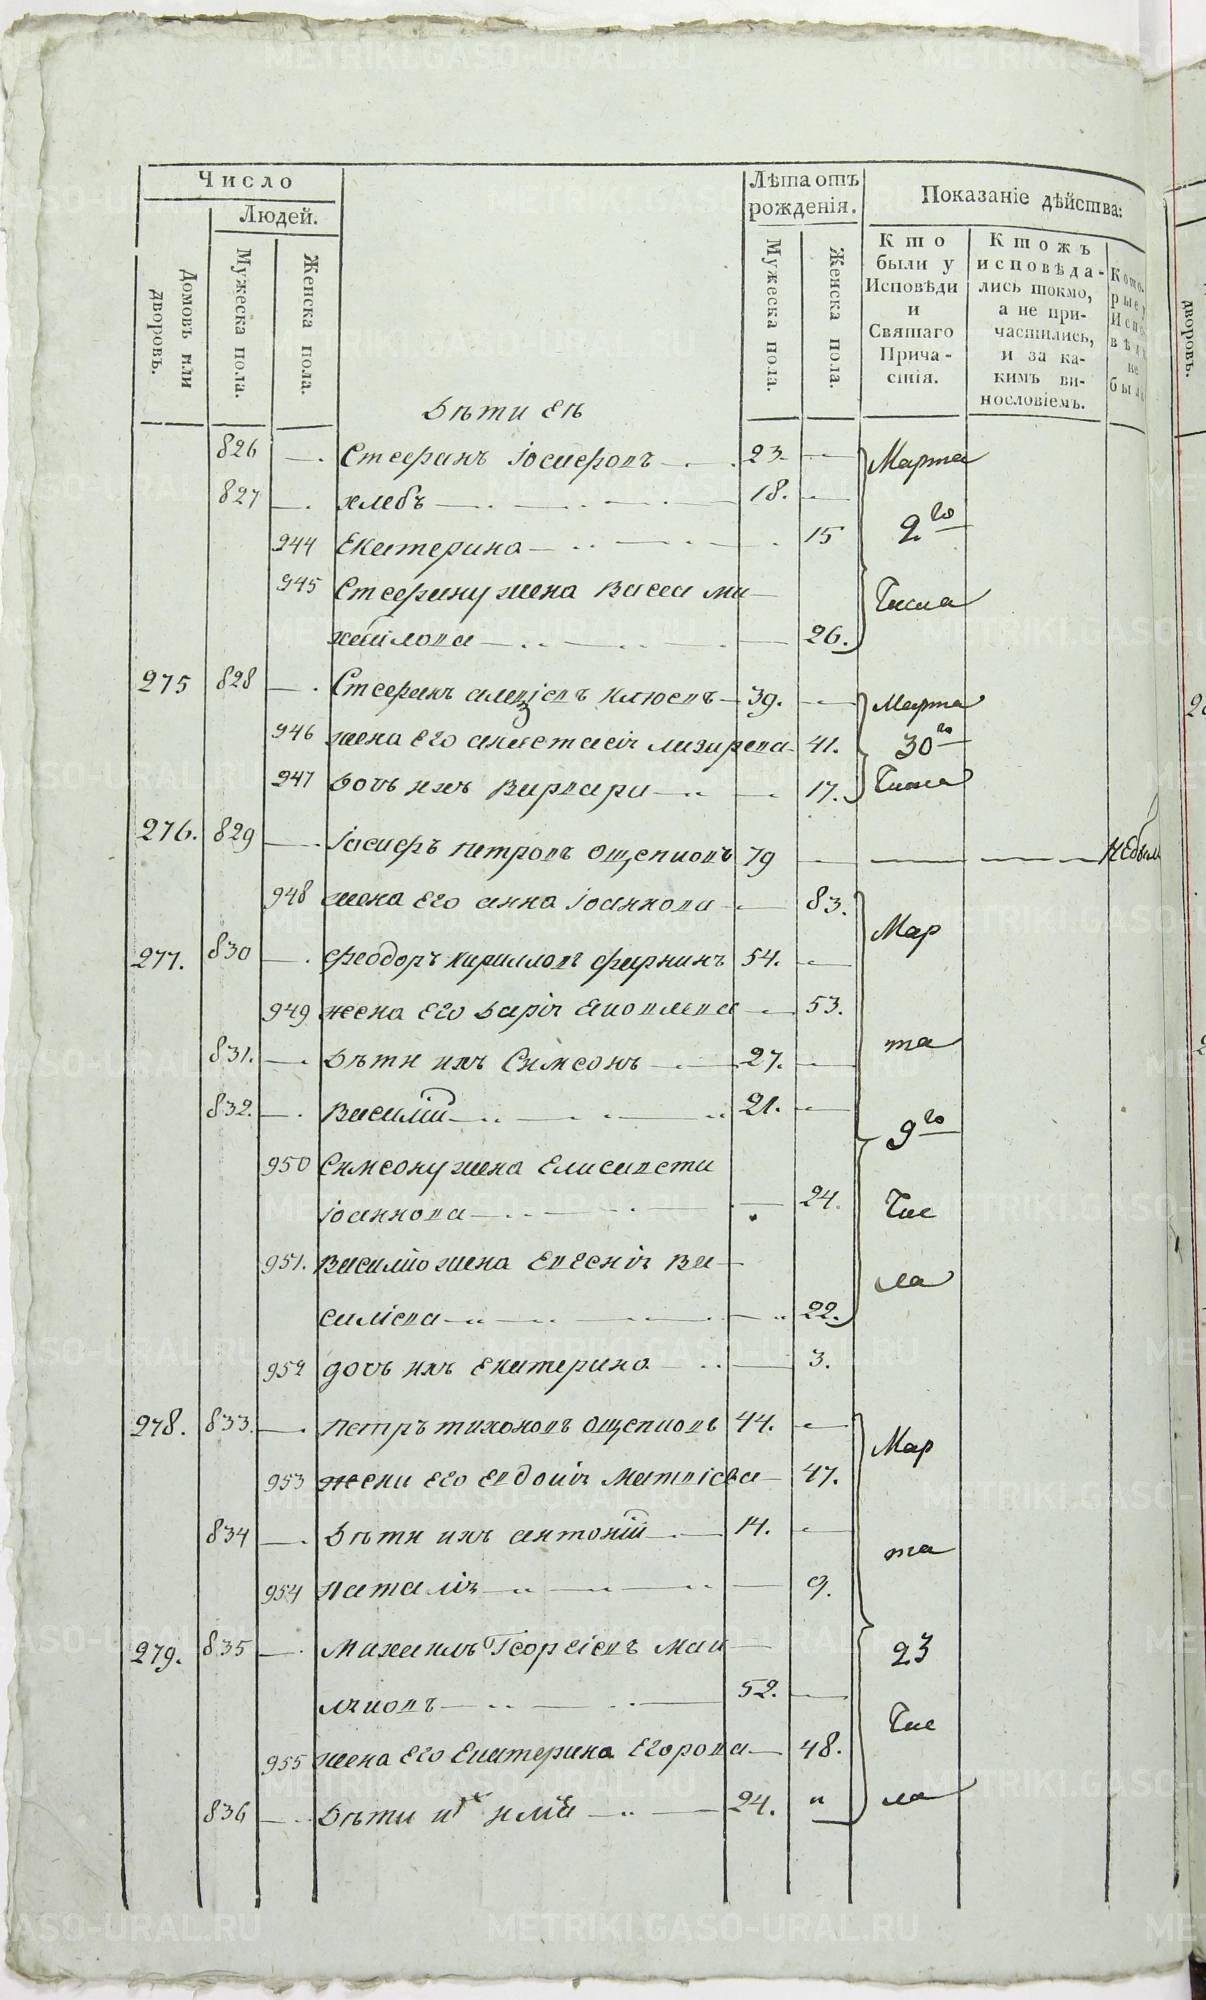 Число
Людей.
Домовъ или дворовъ.
Мужеска пола.
Женска пола.
Лѣта отъ рожденія.
Мужеска пола.
Женска пола.
Показаніе дѣйства:
Кто были у Исповѣди и Святаго Причастія.
Ктожъ исповѣдались токмо, а не причастились, и за какимъ винословіемъ.
Которые у Исповѣди не были
Дѣти Ея
826 Стефанъ Іосифовъ 23. Марта
827 Хлебъ 18.
944 Екатерина 15 2го
945 Стефану жена Васса Ми
хайлова 26. Числа
275 828 Стефанъ Клюевъ 39. Марта
946 жена Его Анастасія Лазарева 41. 30го
947 Дочь ихъ Варвара 17. Числа
276. 829 Іосифъ Петровъ Ощепковъ 79 Небыл
948 жена Его Анна Іоаннова 83. Мар
277. 830 Феодоръ Кириловъ 54.
949 жена Его Дарія Яковлева 53.
831. Дѣти ихъ Симеонъ 27. та
832. Василій 21. 9го
950 Симеону жена Елисавета
Іоаннова 24. Чис
951. Василію жена Евгенія Ва
силіева 22. ла
952 дочь ихъ Екатерина 3.
278. 833. Петръ Тихоновъ Ощепковъ 44. Мар
953 жена Его Евдокія Матвіева 47.
834 Дѣти ихъ Антоній 14. та
954 Наталія 9.
279. 835 Михаилъ Георгіевъ Мал
52. 23
955 жена Его Екатерина Егорова 48. Чис
836 Дѣти ихъ 24. " ла
дворовъ.
METRIKI.GASO-URAL.RU